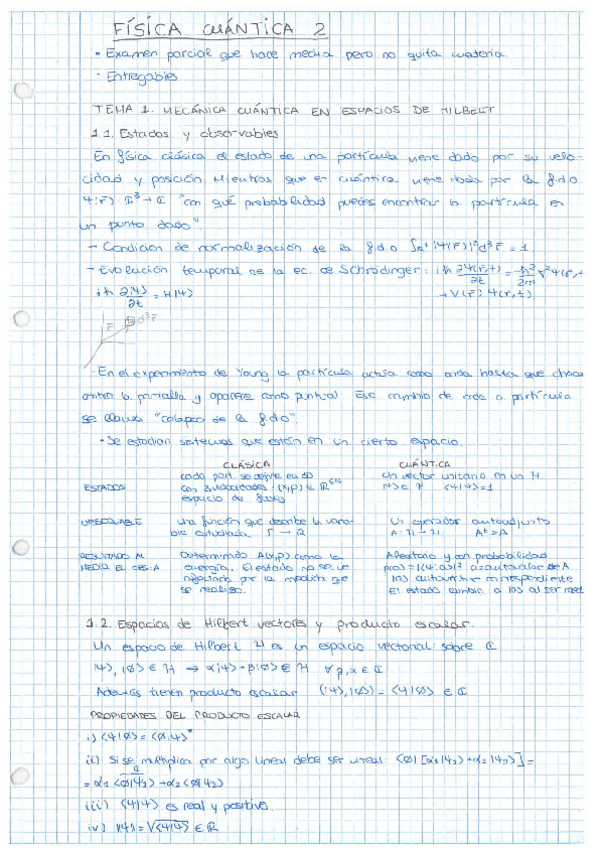 FÍSICA CUÁNTICA 2
• Examen parcial que hace media pero no quita materia.
- Entregables
TEMA 1. MECÁNICA CUÁNTICA EN ESPACIOS DE HILBERT
1.1. Estados y observables
En física clásica el estado de una partícula viene dado por su velo-
cidad y posición Mientras que en cuántica viene dado por la f.d.o
Ψ(r̄) ℝ³→ℂ "con qué probabilidad puedes encontrar la partícula en
un punto dado".
- Condición de normalización de la f.d.o |Ψ(r̄)|²d³r̄ = 1
- Evolución temporal de la ec. de Schrödinger: iħ ∂Ψ(r̄,t)/∂t = -ħ²/2m ∇²Ψ(r̄,t)
iħ ∂|Ψ⟩/∂t = H|Ψ⟩ + V(r̄) Ψ(r̄,t)
r̄ d³r̄
· En el experimento de Young la partícula actúa como onda hasta que choca
contra la pantalla y aparece como puntual Ese cambio de onda a partícula
se llama "colapso de la f.do".
• Se estudian sistemas que están en un cierto espacio.
CLÁSICA CUÁNTICA
ESTADOS cada part. se define en 3D Un vector unitario en un H
con (x,p) ∈ ℝ espacio de fases |Ψ⟩ ∈ H ⟨Ψ|Ψ⟩=1
OBSERVABLE Una función que describe la varia-
ble estudiada Γ → ℝ Un operador autoadjunto
A: H → H A†=A
RESULTADO AL Determinado A(x,p) como la Aleatorio y con probabilidad
MEDIR energía. El estado no se ve p(a) = |⟨Ψ|a⟩|² a=autovalor de A
por la medida que |a⟩ autovector correspondiente
se realiza. El estado cambia a |a⟩ al ser med
1.2. Espacios de Hilbert vectores y producto escalar.
Un espacio de Hilbert H es un espacio vectorial sobre ℂ
|Ψ⟩, |Ø⟩ ∈ H → α|Ψ⟩+β|Ø⟩ ∈ H ∀β,α ∈ ℂ
Además tienen producto escalar (|Ψ⟩,|Ø⟩) = ⟨Ψ|Ø⟩ ∈ ℂ
PROPIEDADES DEL PRODUCTO ESCALAR
i) ⟨Ψ|Ø⟩ = ⟨Ø|Ψ⟩*
ii) Si se multiplica por algo lineal debe ser lineal: ⟨Ø| [α₁|Ψ₁⟩+α₂|Ψ₂⟩] =
= α₁⟨Ø|Ψ₁⟩+α₂⟨Ø|Ψ₂⟩
iii) ⟨Ψ|Ψ⟩ es real y positivo.
iv) |Ψ| = √⟨Ψ|Ψ⟩ ∈ ℝ